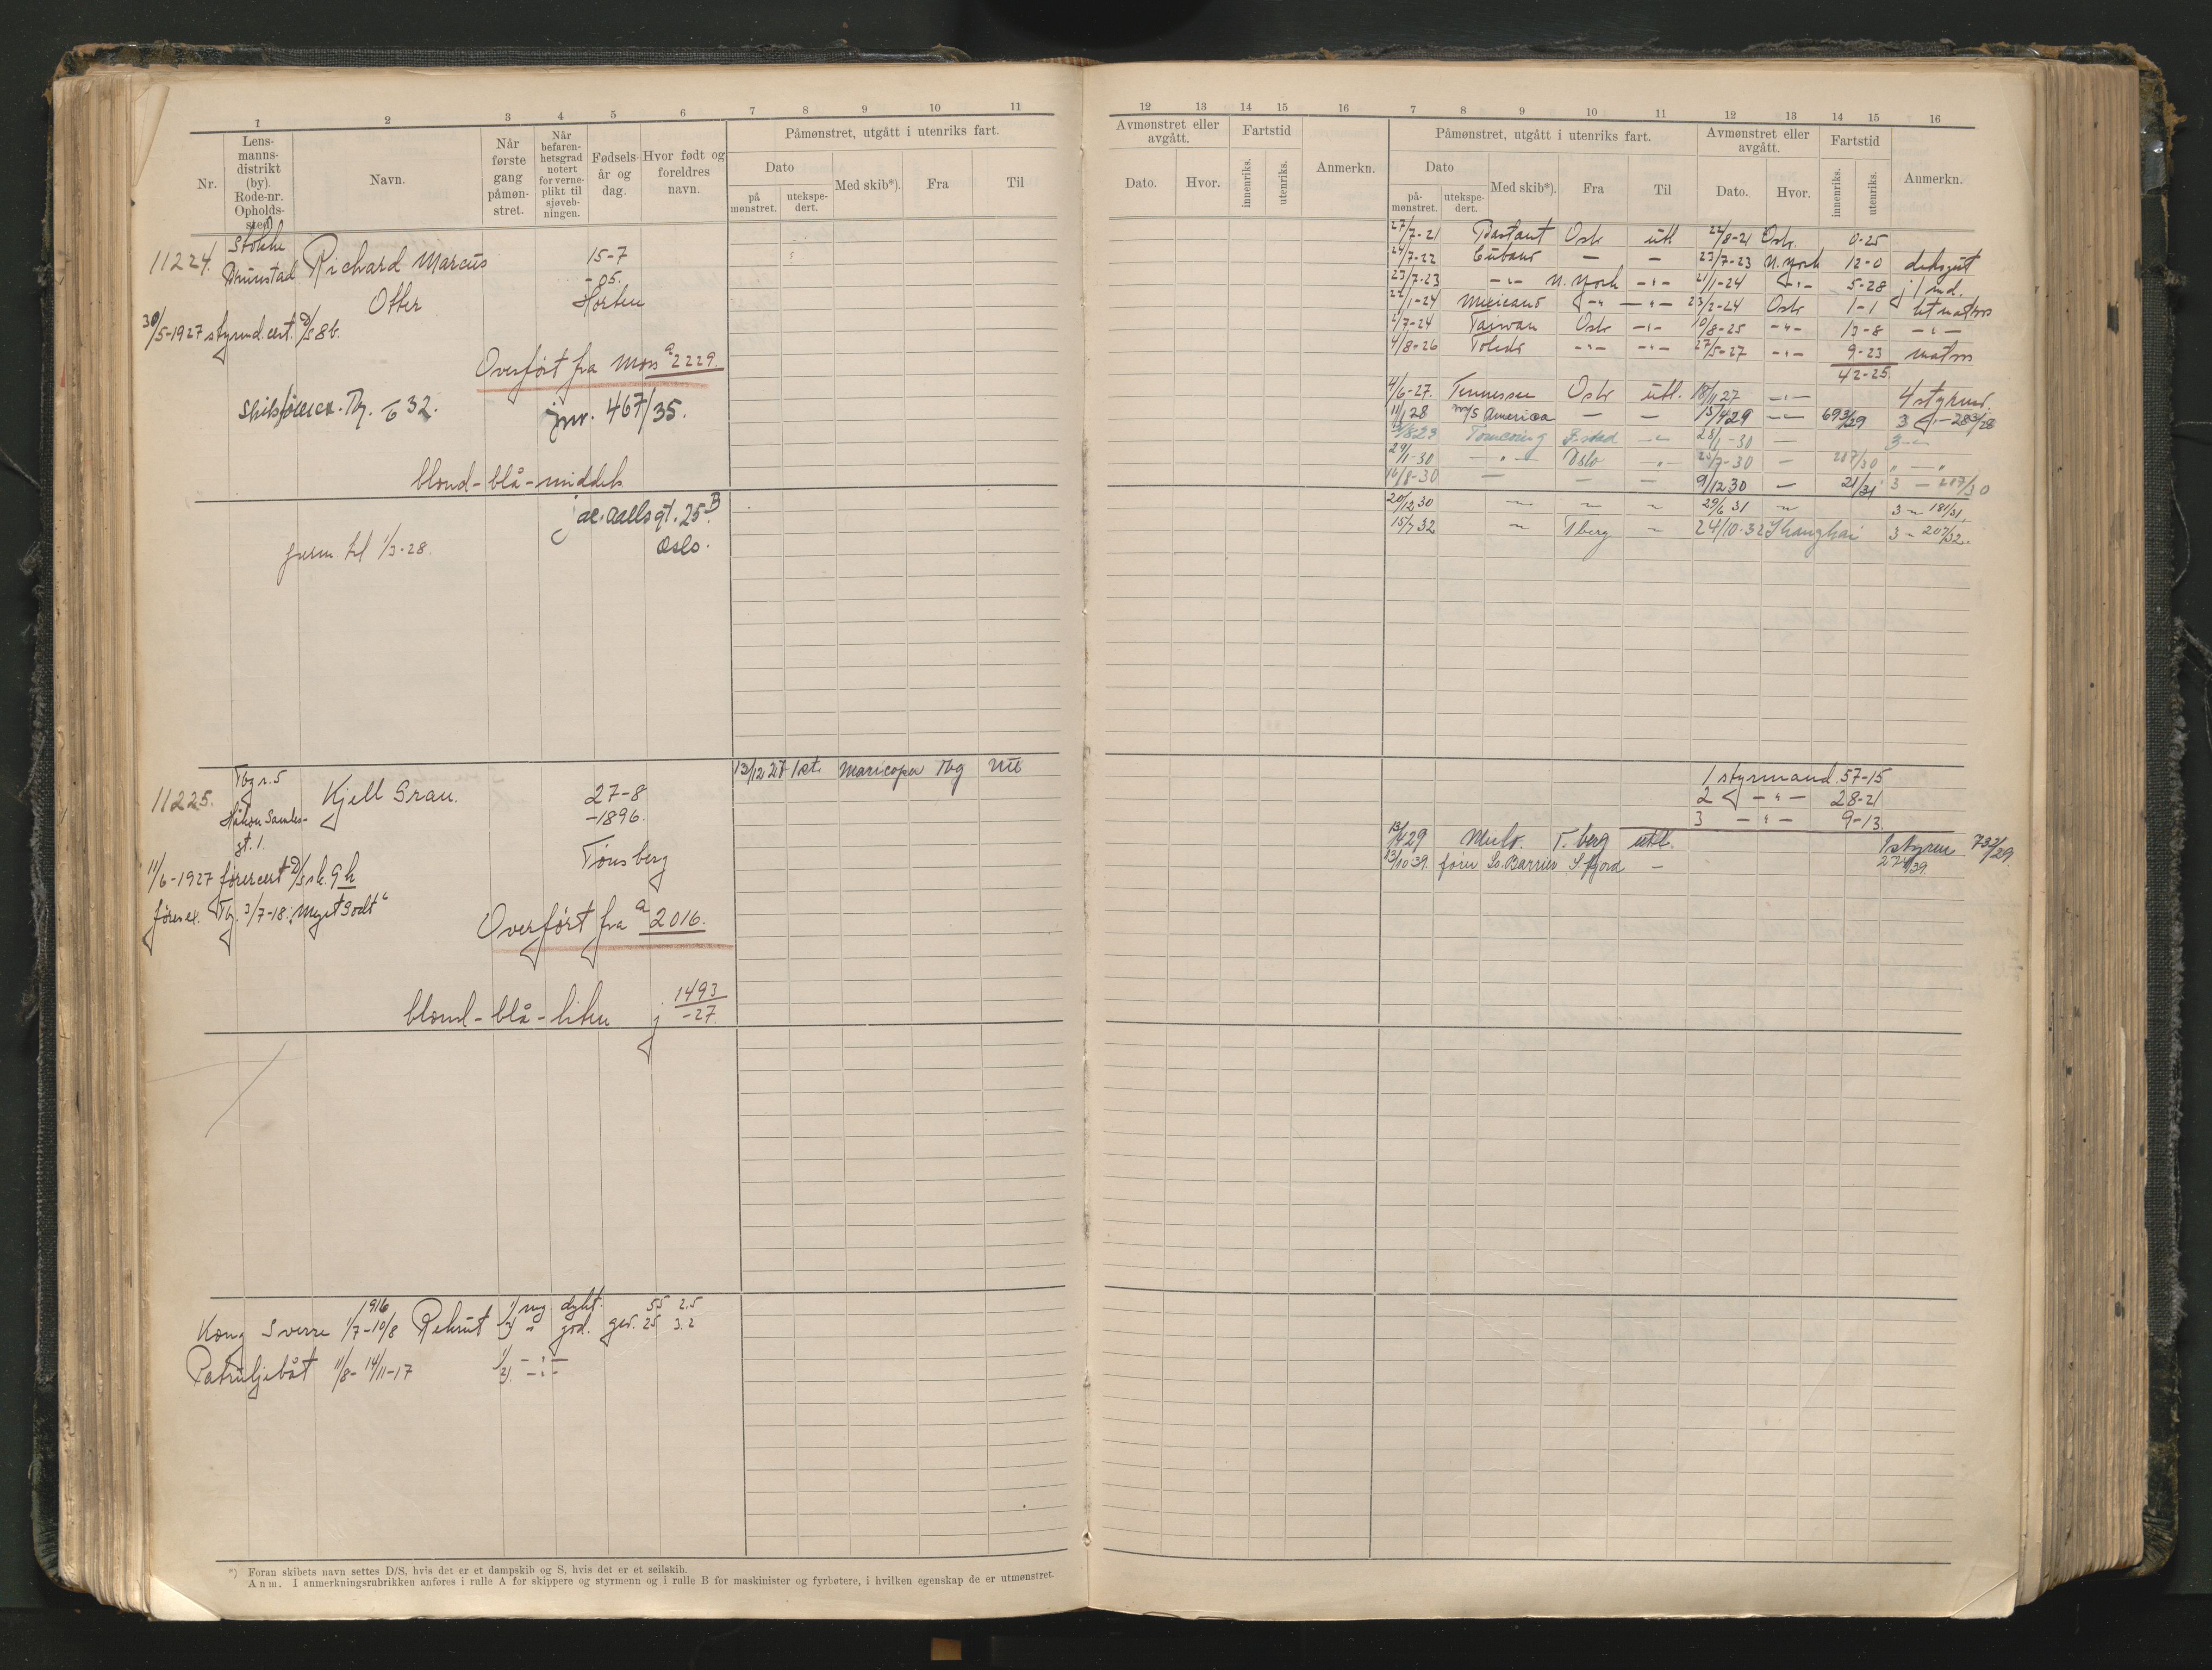 1 2 3 4 5 6 7 8 9 10 11
Nr.
Lens-
manns-
distrikt
(by).
Rode-nr.
Opholds-
sted)
Navn.
Når
første
gang
påmøn-
stret.
Når
befaren-
hetsgrad
notert
for verne-
plikt til
sjøveb-
ningen.
Fødsels-
år og
dag.
Hvor født og
foreldres
navn.
Påmønstret, utgått i utenriks fart.
Dato
på
mønstret.
utekspe-
dert.
Med skib*).
Fra
Til
11224.
Stokke
Richard Marcus
Otter
15-7
-05.
Horten
30/5-1927 styrmd. cert. D/S 86.
Overført fra Møns a 2229.
Skibsførerex. Tbg. 32.
jnr. 467/35.
blond - blå - middels
Jac. Aallsgt. 25 B.
Oslo.
perm. til 1/3-28.
11225.
Tbg r. 5
Kjell Grau.
27-8
-1896.
Tønsberg
Håkon Gamles-
gt. 1.
13/12 27 1st. Maricopa Tbg Utl
11/6-1927 førercert D/S sk. 9 h
førerex. Tbg. 3/7-18: "Meget Godt"
Overført fra a 2016.
blond - blå - liten j 1493
-27.
1916
Kong Sverre 1/7-10/8 Rekrut 1) mg. dygt. 55 2.5
2) " god. gev. 25 3.2
Patruljebåt 11/8 - 14/11-17 1) - " -
2) - " -
*) Foran skibets navn settes D/S, hvis det er et dampskib og S, hvis det er et seilskib.
Anm. I anmerkningsrubrikken anføres i rulle A for skippere og styrmenn og i rulle B for maskinister og fyrbøtere, i hvilken egenskap de er utmønstret.
12 13 14 15 16 7 8 9 10 11 12 13 14 15 16
Avmønstret eller
avgått.
Fartstid
Dato.
Hvor.
innenriks.
utenriks.
Anmerkn.
Påmønstret, utgått i utenriks fart.
Dato
på-
mønstret.
utekspe-
dert.
Med skib*).
Fra
Til
Avmønstret eller
avgått.
Dato.
Hvor.
Fartstid
innenriks.
utenriks.
Anmerkn.
27/7-21 Bastant Oslo utl 22/8-21 Oslo. 0-25
24/7-22 Cubano — — 23/7-23 N. York 12-0 deksgut
23/7-23 -"- N. York -"- 21/1-24 -"- 5-28 j/md.
22/1-24 Mexicano -"- -"- 23/2-24 Oslo 1-1 letmatros
2/7-24 Taiwan Oslo -"- 10/8-25 -"- 13-8 -"-
4/8-26 Toledo -"- -"- 27/5-27 -"- 9-23 matros
42-25
4/6-27. Tennessee Oslo utl. 18/1 27 -"- 4 styrmd.
11/1 28 M/S America — — 15/4 29 -"- 693/29 3 -"- 283/28
3/8 29 F.stad -"- 28/1-30 — 3 -"-
29/1-30 -"- Oslo -"- 25/7-30 — 217/30 " — "
16/8-30 — — — 9/12 30 — 21/31 3 — 217/30
20/12 30 " " " 29/6 31 " 3 " 181/31
15/7 32 " Tberg " 24/10-32 Shanghai 3 " 207/32.
1 styrmand. 57-15
2 -"- 28-21
3 -"- 9-13.
13/4 29 Mulo. T. berg utl. 1 styrm 732/29.
13/10 39. fører So. Barrier S. fjord — 274/39.